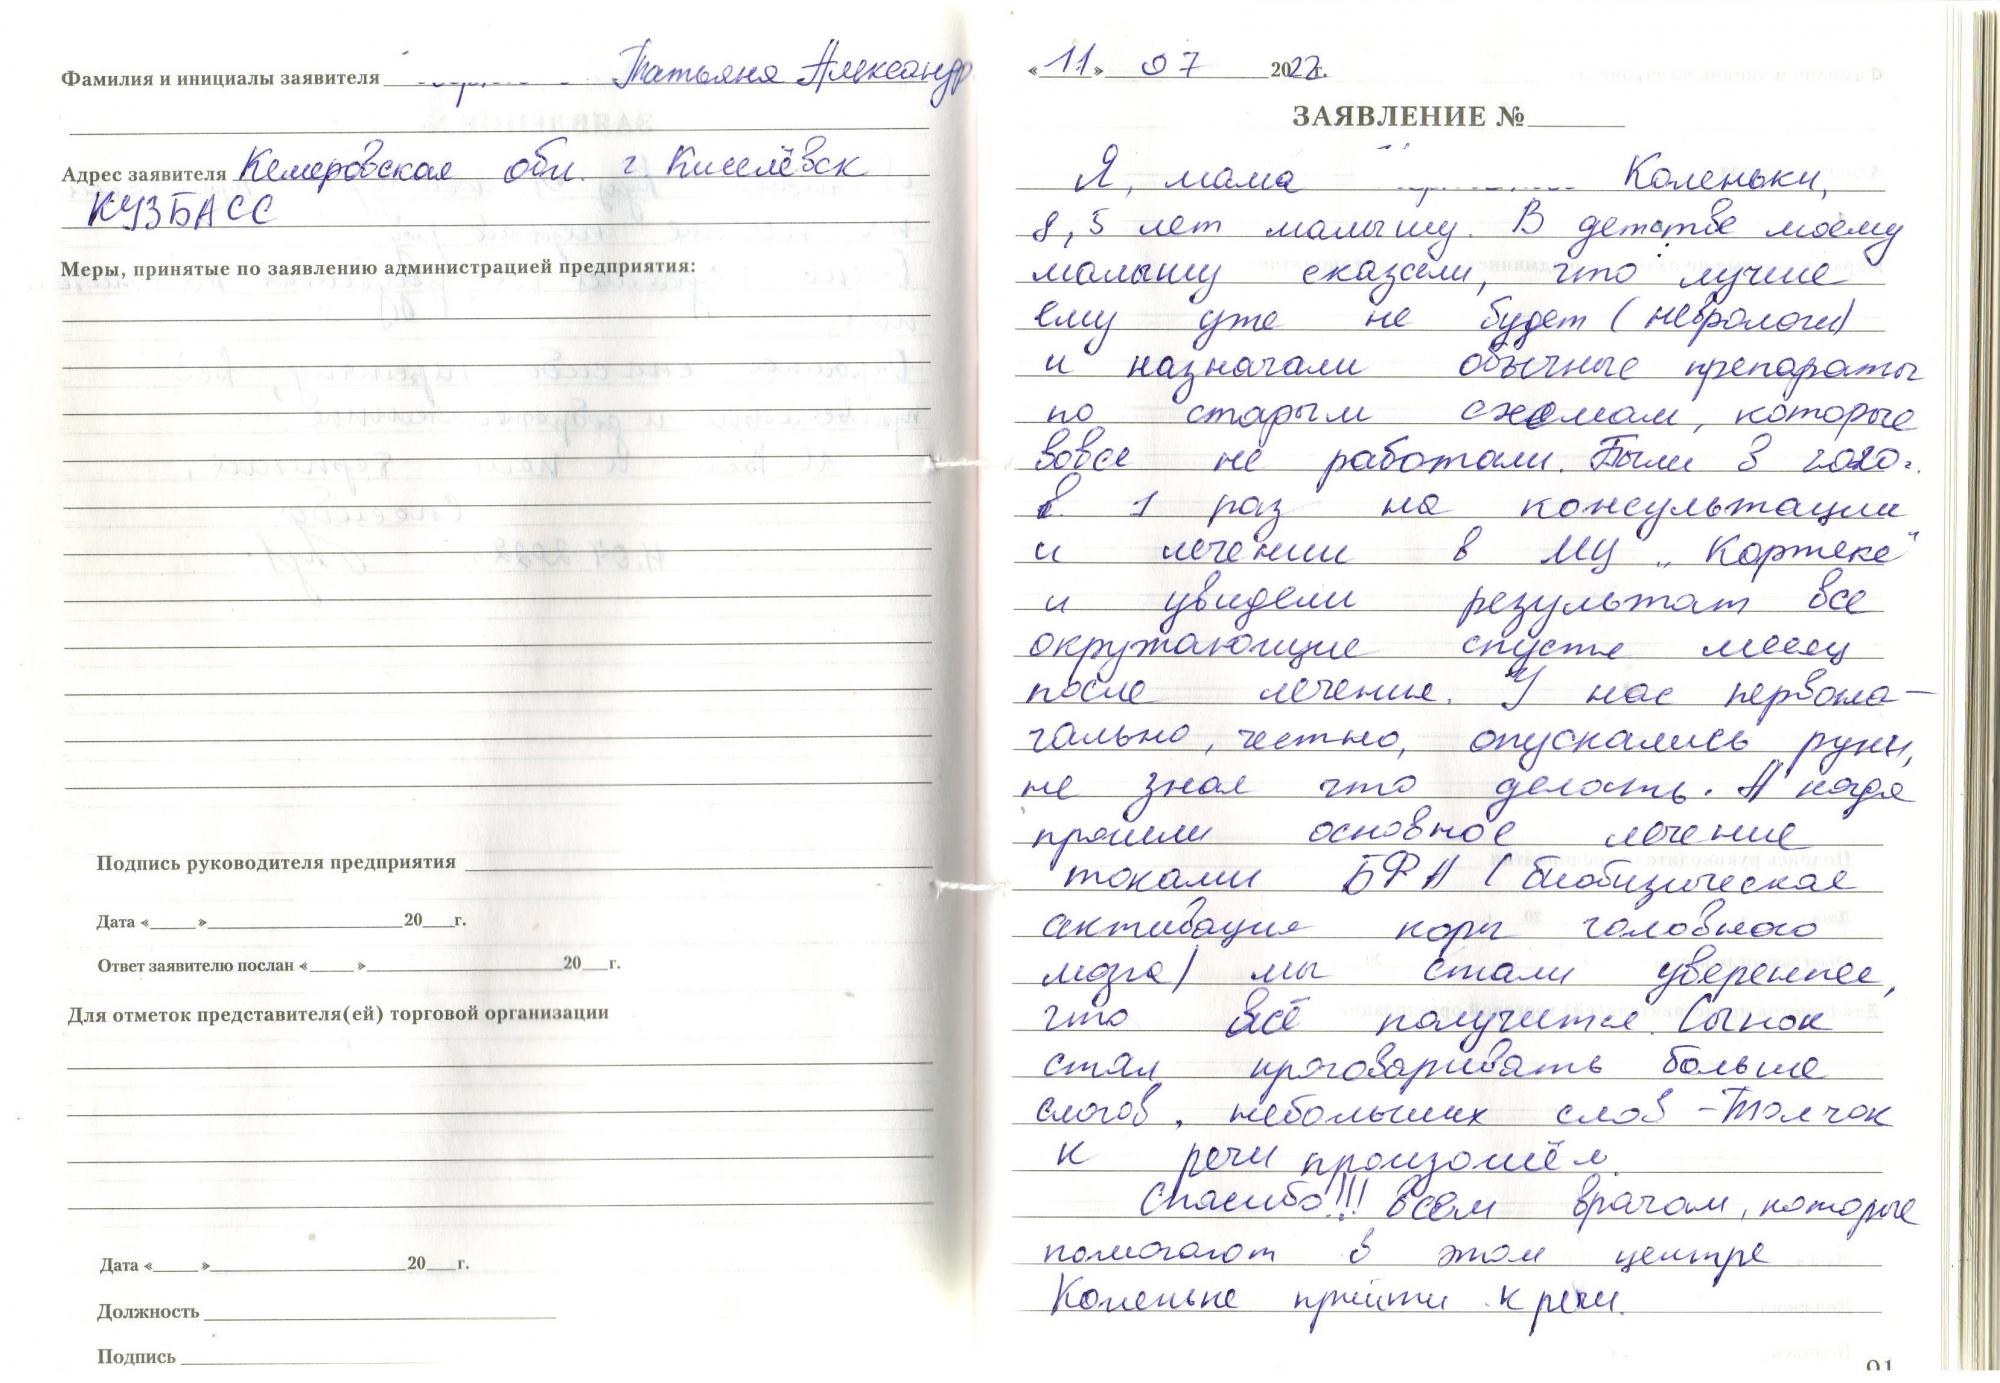 Фамилия и инициалы заявителя Татьяна Александр
Адрес заявителя Кемеровская обл. г Киселёвск
КУЗБАСС
Меры, принятые по заявлению администрацией предприятия:
Подпись руководителя предприятия
Дата «____» ____ 20__г.
Ответ заявителю послан «____» ____ 20__г.
Для отметок представителя(ей) торговой организации
Дата «____» ____ 20__г.
Должность
Подпись
«11» 07 2022г.
ЗАЯВЛЕНИЕ №
Я, мама Коленьки,
8,5 лет малышу. В детстве моему
малышу сказали, что лучше
ему уже не будет (неврологи)
и назначали обычные препараты
по старым схемам, которые
вовсе не работали. Были 3
в 1 раз на консультации
и лечении в МЦ „Кортекс"
и увидели результат все
окружающие спустя месяц
после лечения. У нас первона-
чально, честно, опускались руки,
не зная что делать. А когда
прошли основное лечение
токами БФА (биофизическая
активация коры головного
мозга) мы стали увереннее,
что всё получится. Сынок
стал проговаривать больше
слогов, небольших слов - Толчок
к речи произошёл.
Спасибо!!! Всем врачам, которые
помогают в этом центре
Коленьке прийти к речи.
91